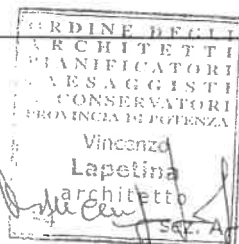 ORDINE DEGLI
ARCHITETTI
PIANIFICATORI
PAESAGGISTI
CONSERVATORI
PROVINCIA DI POTENZA
Vincenzo
Lapetina
architetto
Sez. A